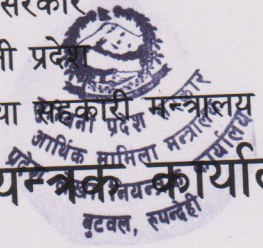 सरकार
नी प्रदेश
या सहकारी मन्त्रालय
यन्त्रक कार्याल
प्रदेश सरकार
आर्थिक मामिला मन्त्रालय
कार्यालय
बुटवल, रुपन्देही